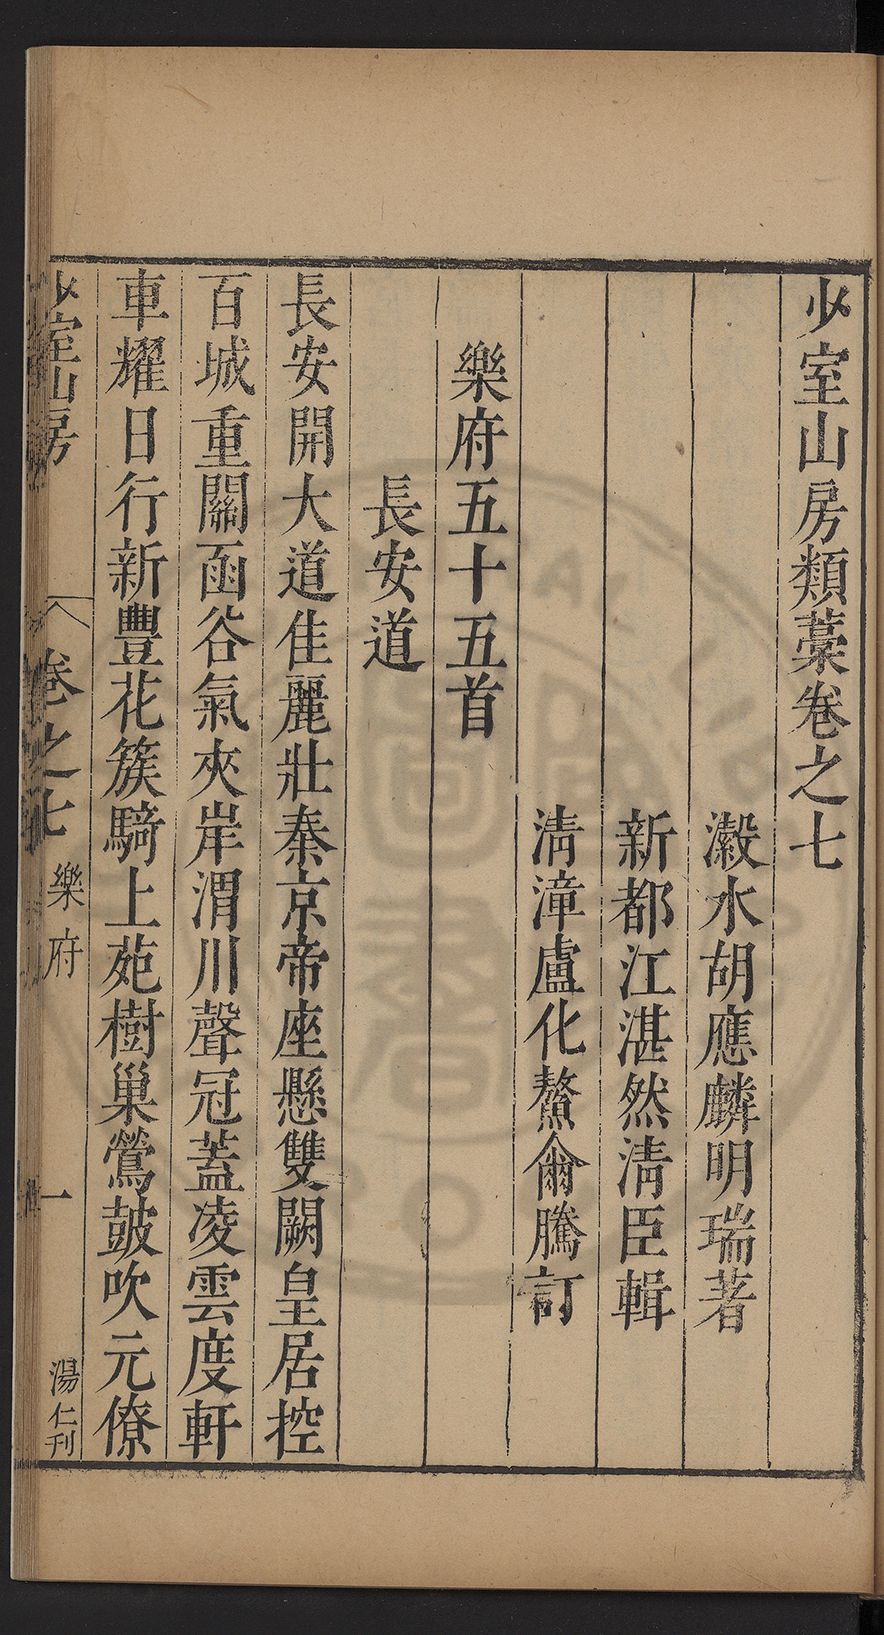 少室山房類藁卷之七
瀔水胡應麟明瑞著
新都江湛然淸臣輯
淸漳盧化鰲侖騰訂
樂府五十五首
長安道
長安開大道佳麗壯秦京帝座懸雙闕皇居控
百城重關函谷氣夾岸渭川聲冠蓋凌雲度軒
車耀日行新豐花簇騎上苑樹巢鶯鼓吹元僚
少室山房
卷之七
樂府
一
湯仁刊